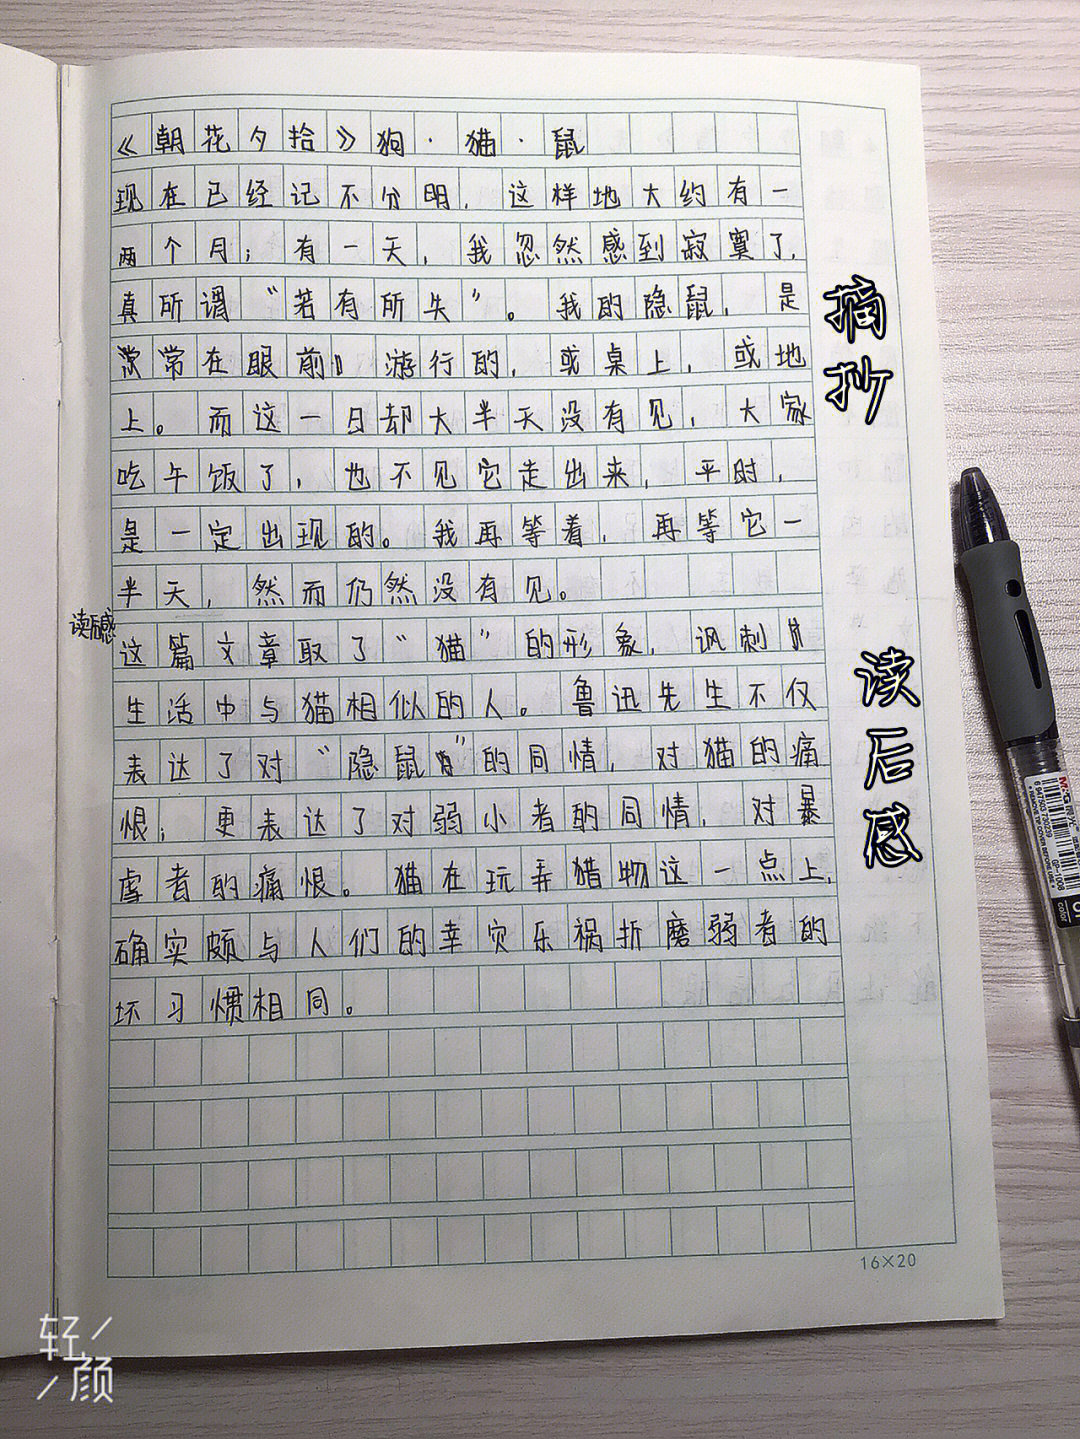 《朝花夕拾》狗·猫·鼠
现在已经记不分明，这样地大约有一
两个月；有一天，我忽然感到寂寞了，
真所谓“若有所失”。我的隐鼠，是
常在眼前游行的，或桌上，或地
上。而这一日却大半天没有见，大家
吃午饭了，也不见它走出来，平时，
是一定出现的。我再等着，再等它一
半天，然而仍然没有见。
读后感
这篇文章取了“猫”的形象，讽刺
生活中与猫相似的人。鲁迅先生不仅
表达了对“隐鼠”的同情，对猫的痛
恨；更表达了对弱小者的同情，对暴
虐者的痛恨。猫在玩弄猎物这一点上，
确实颇与人们的幸灾乐祸折磨弱者的
坏习惯相同。
摘抄
读后感
16×20
M&G 晨光
6 947503 726829
GP-1008
轻颜